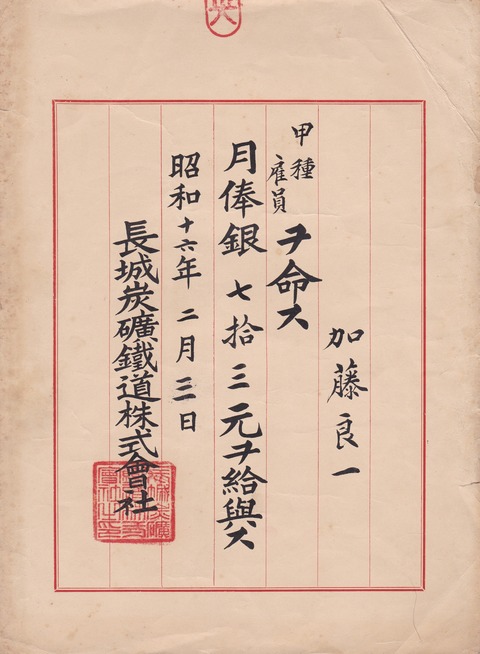 加藤良一
甲種
雇員
ヲ命ス
月俸銀七拾三元ヲ給與ス
昭和十六年二月三日
長城炭礦鐵道株式會社